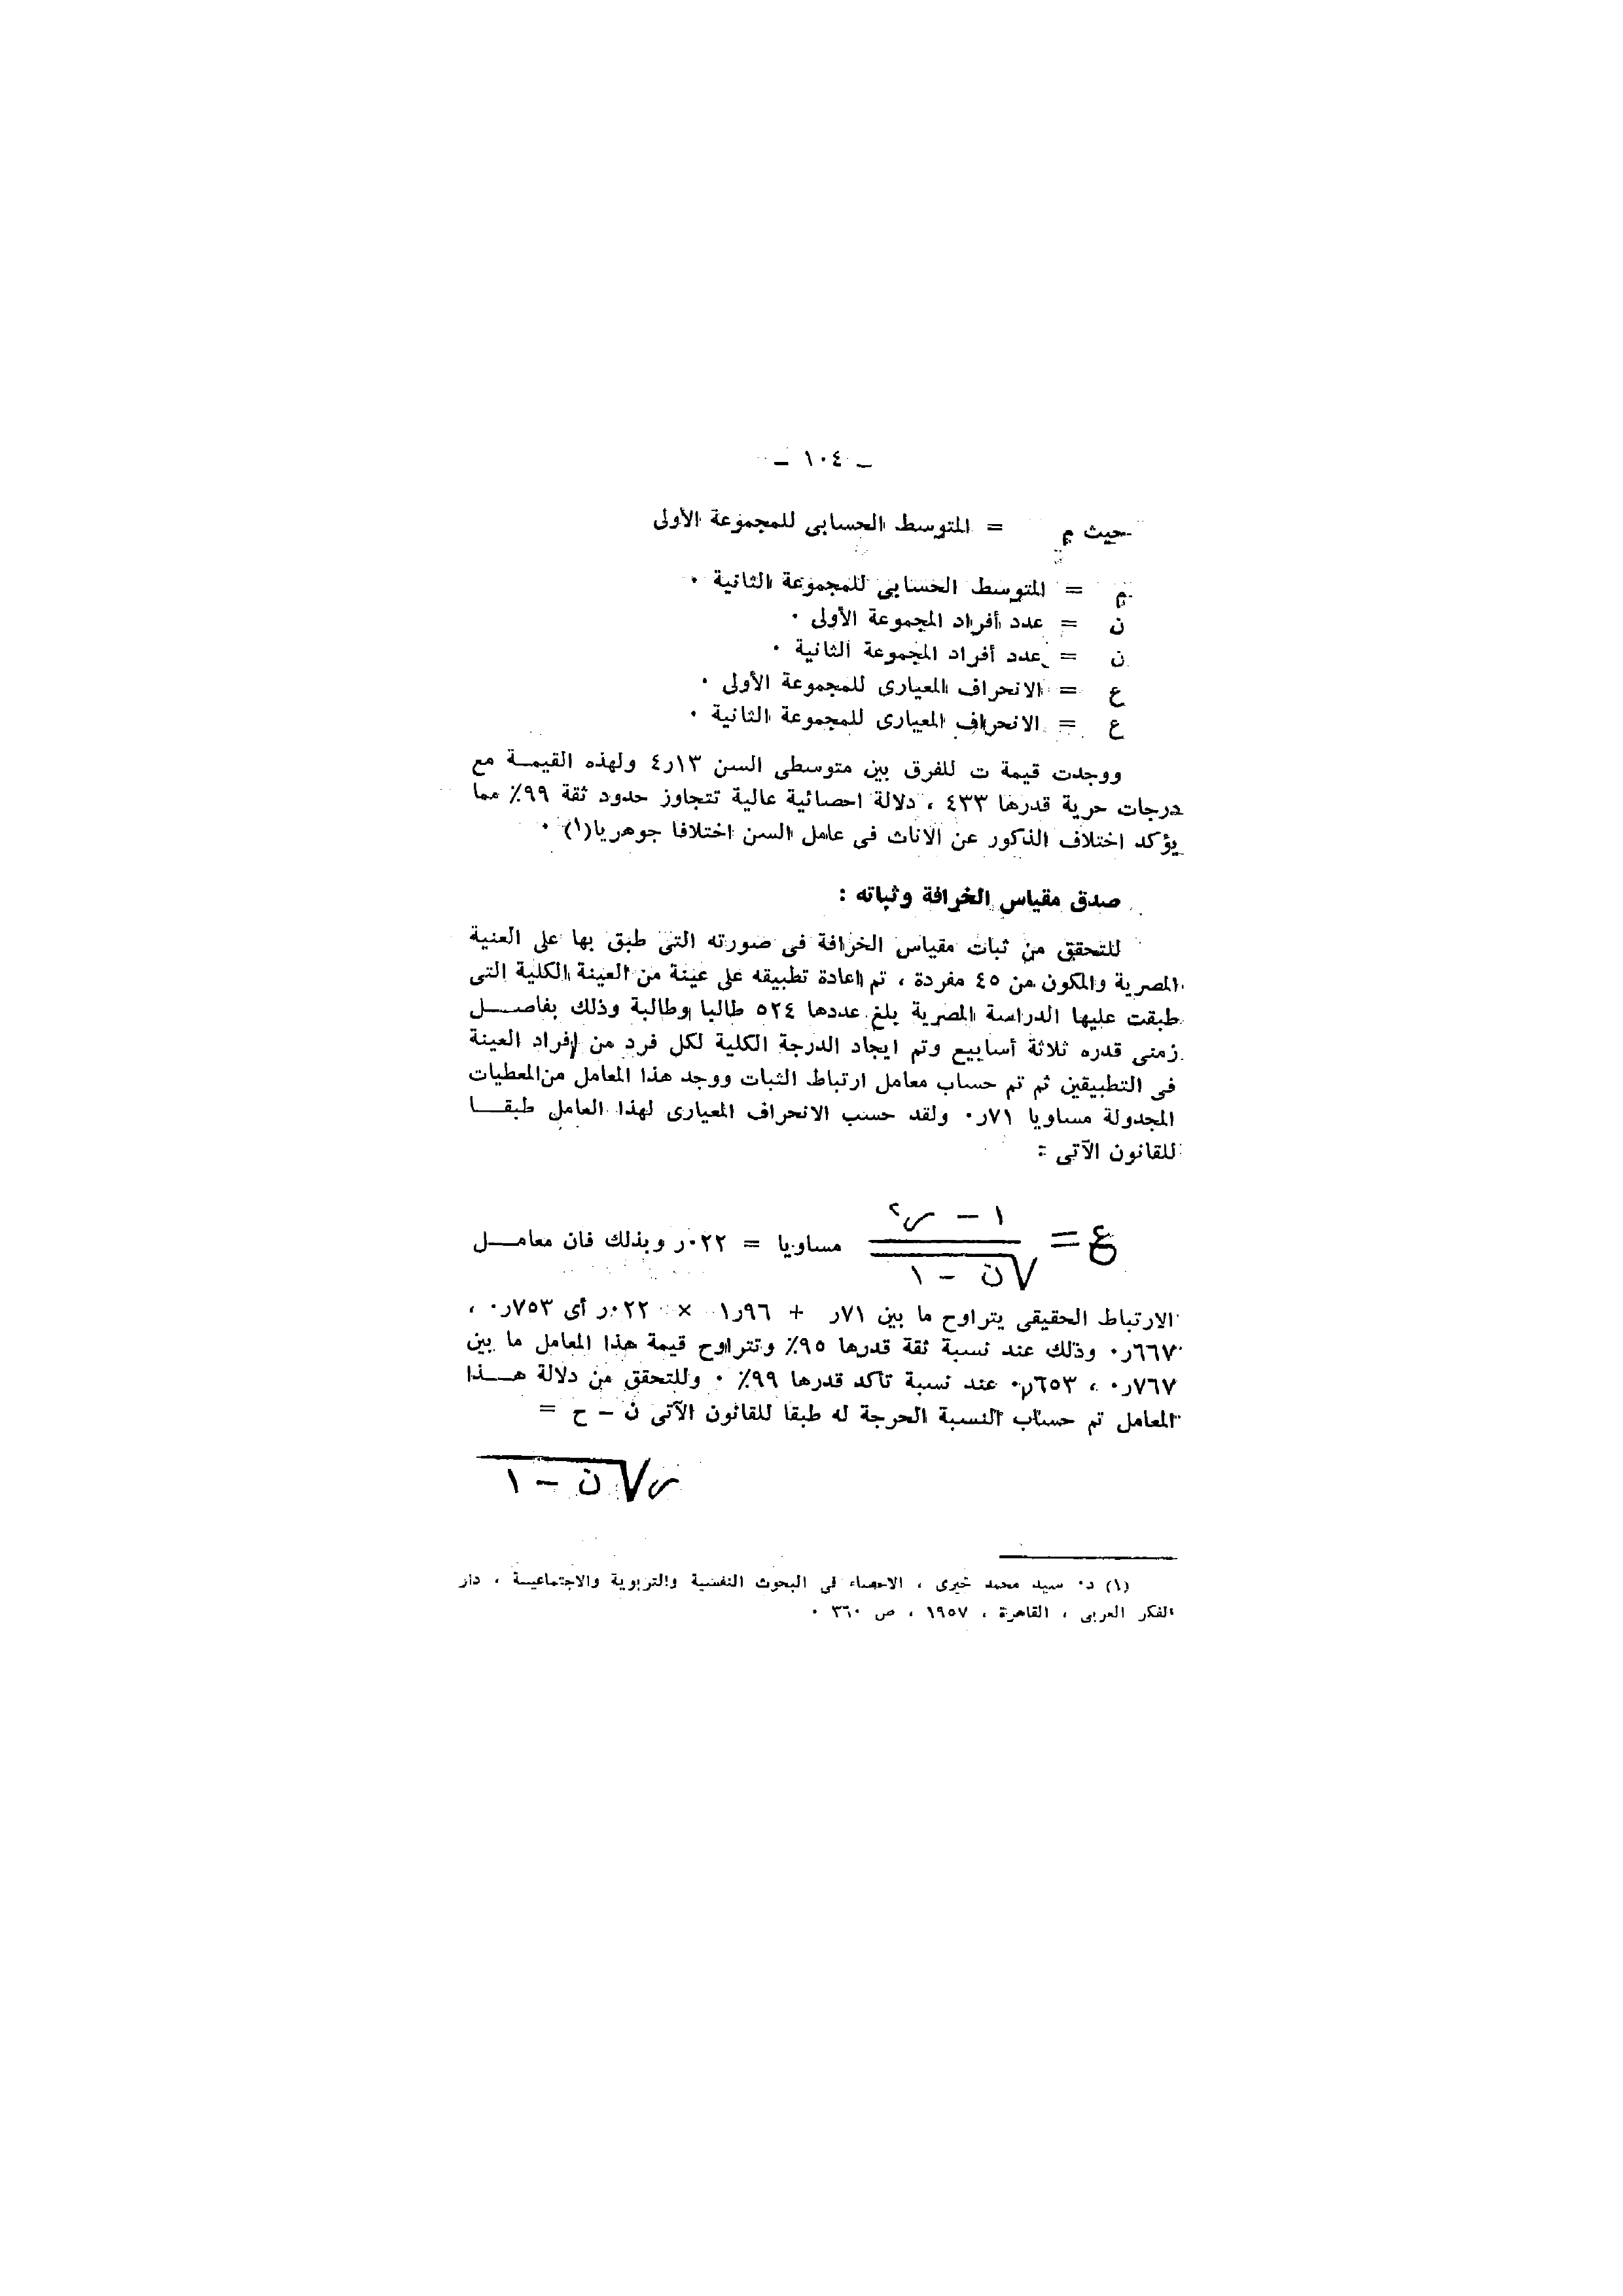 ـ ١٠٤ ـ
حيث م = المتوسط الحسابى للمجموعة الأولى
م = المتوسط الحسابى للمجموعة الثانية ٠
ن = عدد أفراد المجموعة الأولى ٠
ن = عدد أفراد المجموعة الثانية ٠
ع = الانحراف المعيارى للمجموعة الأولى ٠
ع = الانحراف المعيارى للمجموعة الثانية ٠
ووجدت قيمة ت للفرق بين متوسطى السن ١٣ر٤ ولهذه القيمـة مع
درجات حرية قدرها ٤٣٣ ، دلالة احصائية عالية تتجاوز حدود ثقة ٩٩٪ مما
يؤكد اختلاف الذكور عن الاناث فى عامل السن اختلافا جوهريا(١) ٠
صدق مقياس الخرافة وثباته :
للتحقق من ثبات مقياس الخرافة فى صورته التى طبق بها على العنية
المصرية والمكون من ٤٥ مفردة ، تم اعادة تطبيقه على عينة من العينة الكلية التى
طبقت عليها الدراسة المصرية بلغ عددها ٥٢٤ طالبا وطالبة وذلك بفاصـــل
زمنى قدره ثلاثة أسابيع وتم ايجاد الدرجة الكلية لكل فرد من افراد العينة
فى التطبيقين ثم تم حساب معامل ارتباط الثبات ووجد هذا المعامل من المعطيات
المجدولة مساويا ٧١ر٠ ولقد حسب الانحراف المعيارى لهذا العامل طبقــا
للقانون الآتى :
١ - ر٢
ع = مساويا = ٠٢٢ر وبذلك فان معامـــل
√ن - ١
الارتباط الحقيقى يتراوح ما بين ٧١ر + ٩٦ر١ × ٠٢٢ر أى ٧٥٣ر٠ ،
٦٦٧ر٠ وذلك عند نسبة ثقة قدرها ٩٥٪ وتتراوح قيمة هذا المعامل ما بين
٧٦٧ر٠ ، ٦٥٣ر٠ عند نسبة تأكد قدرها ٩٩٪ ٠ وللتحقق من دلالة هـــذا
المعامل تم حساب النسبة الحرجة له طبقا للقانون الآتى ن – ح =
ر√ن - ١
(١) د٠ سيد محمد خيرى ، الاحصاء فى البحوث النفسية والتربوية والاجتماعيـة ، دار
الفكر العربى ، القاهرة ، ١٩٥٧ ، ص ٣٦٠ ٠